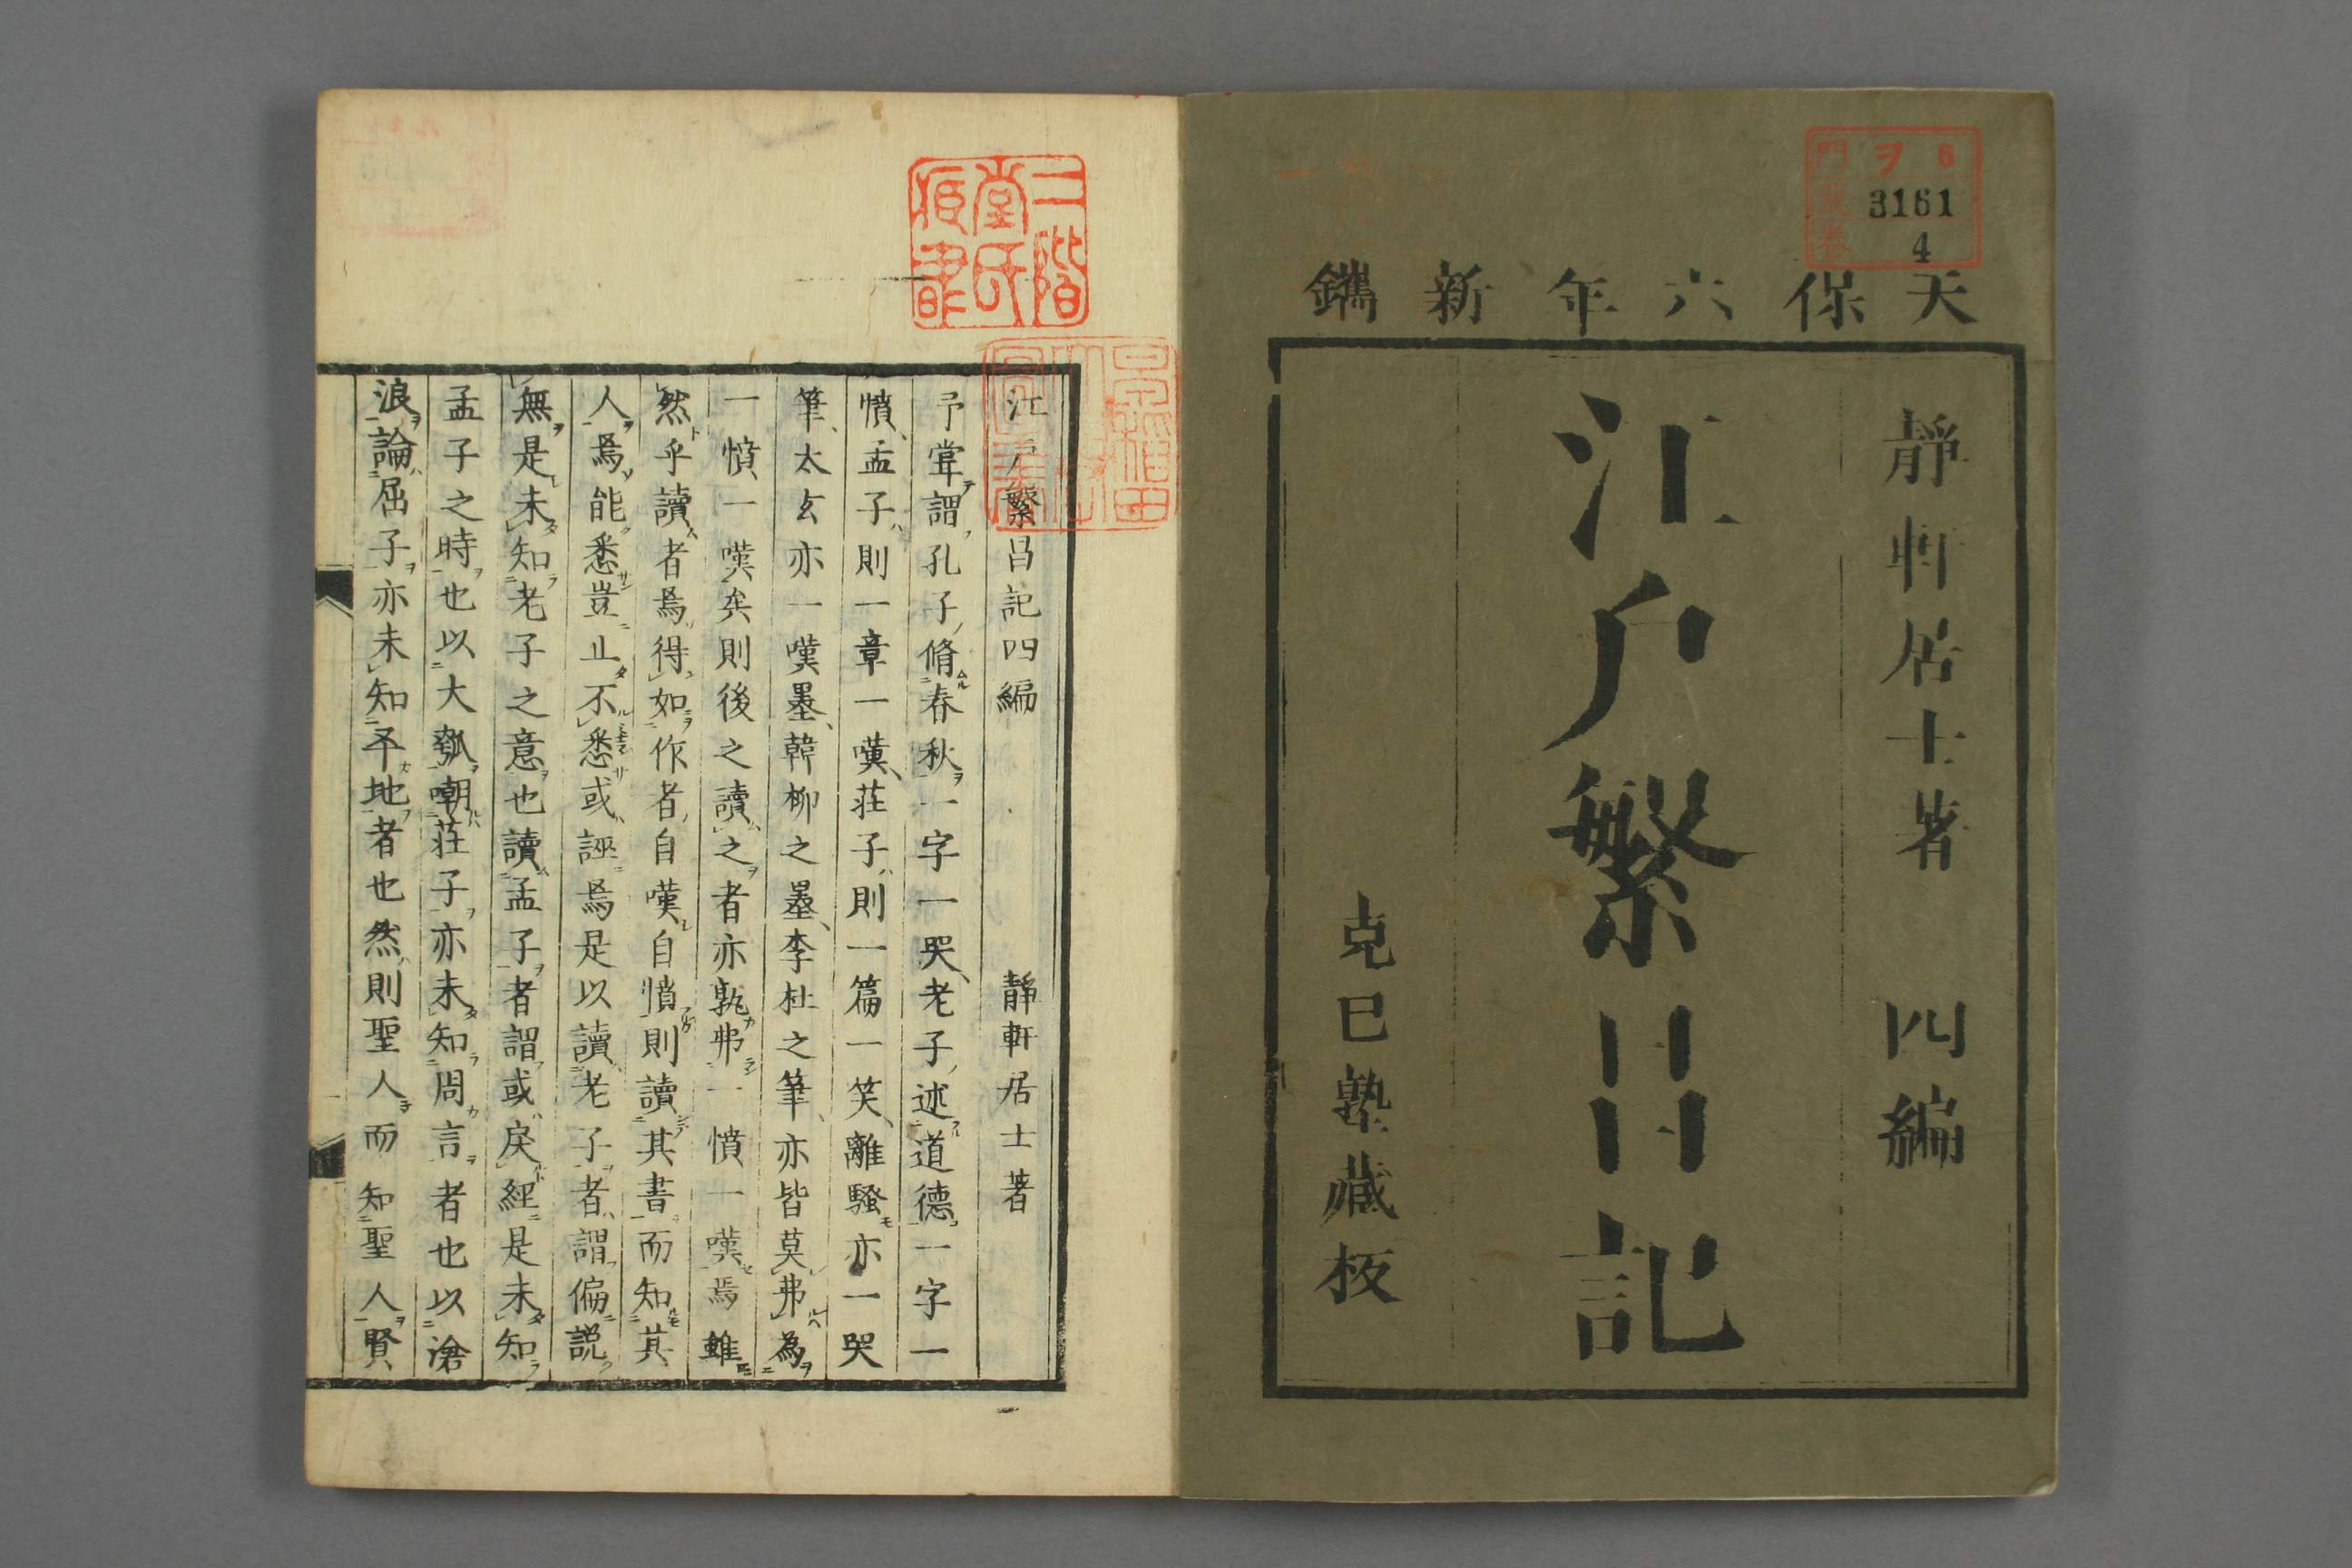 天保六年新鐫
靜軒居士著　四編
江戶繁昌記
克巳塾藏板
門
ヲ 6
3161
4
二階
堂氏
江戶繁昌記四編　靜軒居士著
予嘗謂孔子脩春秋一字一哭老子述道德一字一
憤孟子則一章一嘆莊子則一篇一笑離騷亦一哭
筆太玄亦一嘆墨韓柳之墨李杜之筆亦皆莫弗為
一憤一嘆矣則後之讀之者亦孰弗一憤一嘆焉雖
然乎讀者焉得如作者自嘆自憤則讀其書而知其
人焉能悉豈止不悉或誣焉是以讀老子者謂偏説
無是未知老子之意也讀孟子者謂或戾經是未知
孟子之時也以大瓠嘲莊子亦未知周言者也以滄
浪論屈子亦未知平地者也然則聖人而知聖人賢